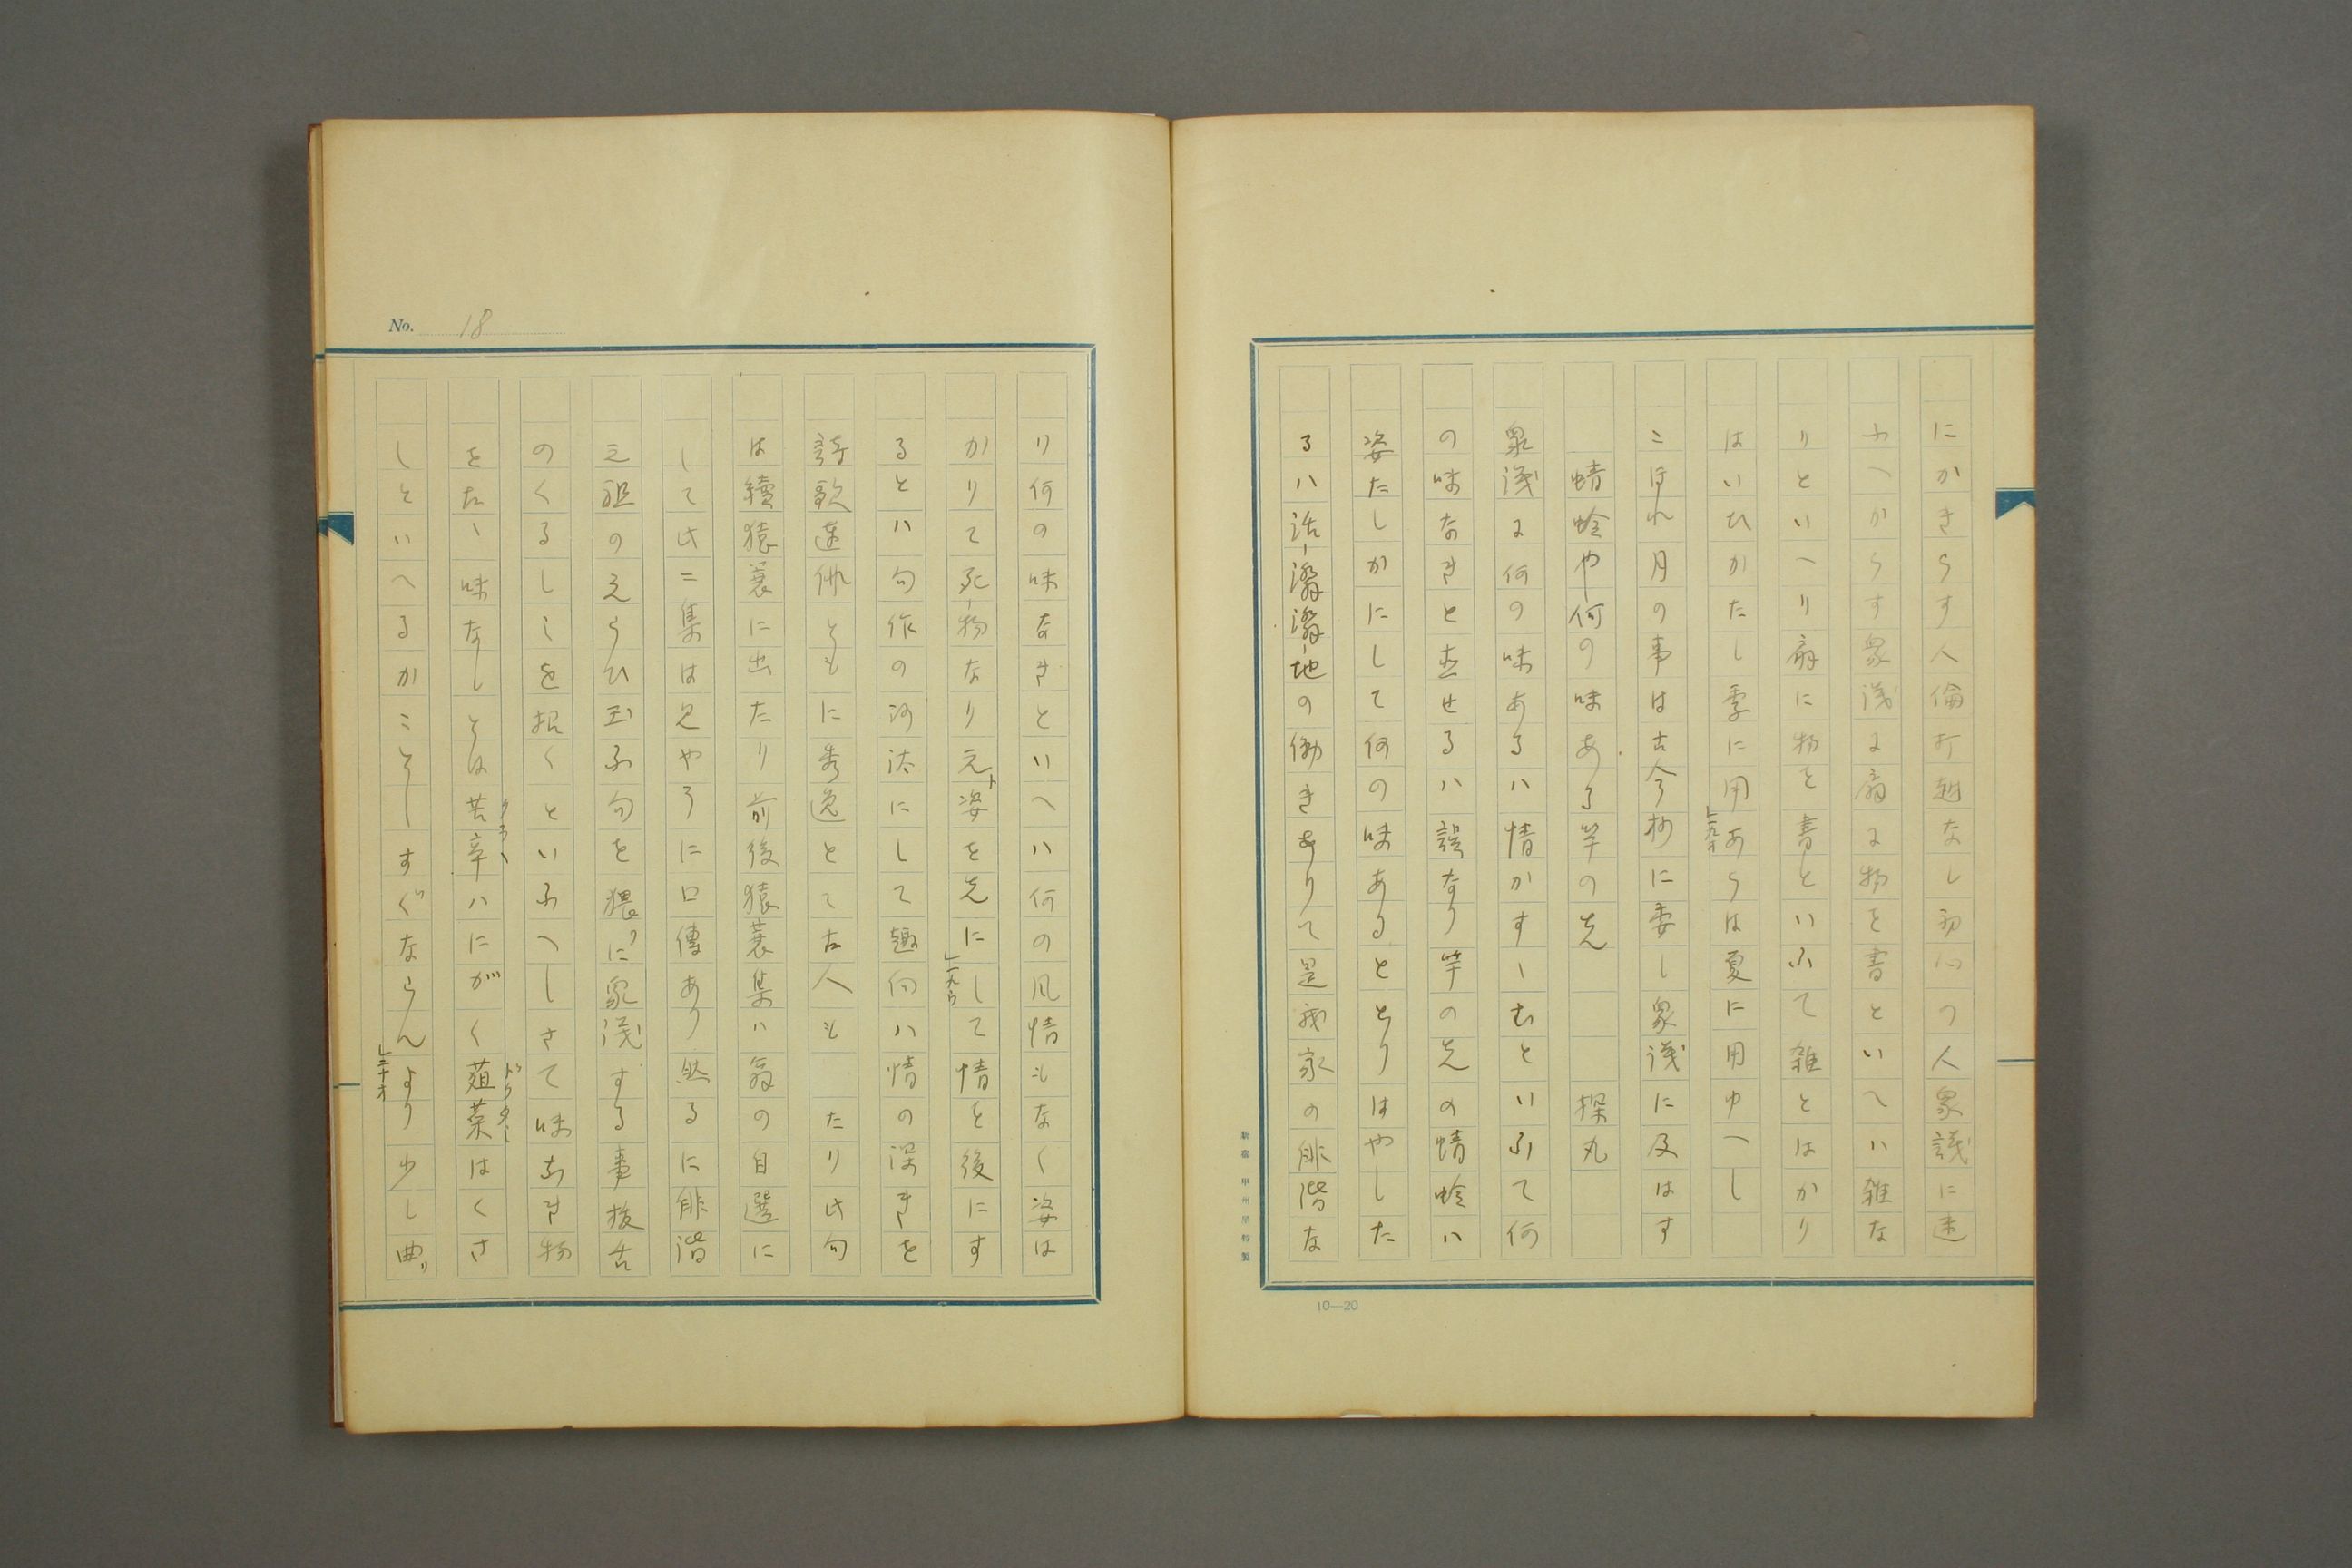 にかきらす人倫打越なし初心の人衆議に迷
ふへからす衆議に扇に物を書といへハ雑な
りといへり扇に物を書といふて雑とはかり
はいひかたし季に用あらは夏に用ゆへし
」一九オ
こほれ月の事は古今抄に委し衆議に及はす
蜻蛉や何の味ある竿の先 探丸
衆議に何の味あるハ情かすーむといふて何
の味なきと出せるハ誤なり竿の先の蜻蛉ハ
姿たしかにして何の味あるととりはやした
るハ活-溌溌-地の働きありて是我家の俳諧な
新宿 甲州屋特製
10—20
No. 18
り何の味なきといへハ何の風情もなく姿は
かりて死-物なり元ト姿を先にして情を後にす
」一九ウ
るとハ句作の沙汰にして趣向ハ情の深きを
詩歌連俳ともに秀逸とて古人も たり此句
は續猿蓑に出たり前後猿蓑集ハ翁の自選に
して此二集は見やうに口傳あり然るに俳諧
元祖のえらひ玉ふ句を猥リに衆議する事抜舌
のくるしミを招くといふへしさて味なき物
をたゝ味なしとは苦辛ハにがく葅菜はくさ
しといへるかことしすぐならんより少し曲リ
」二十オ